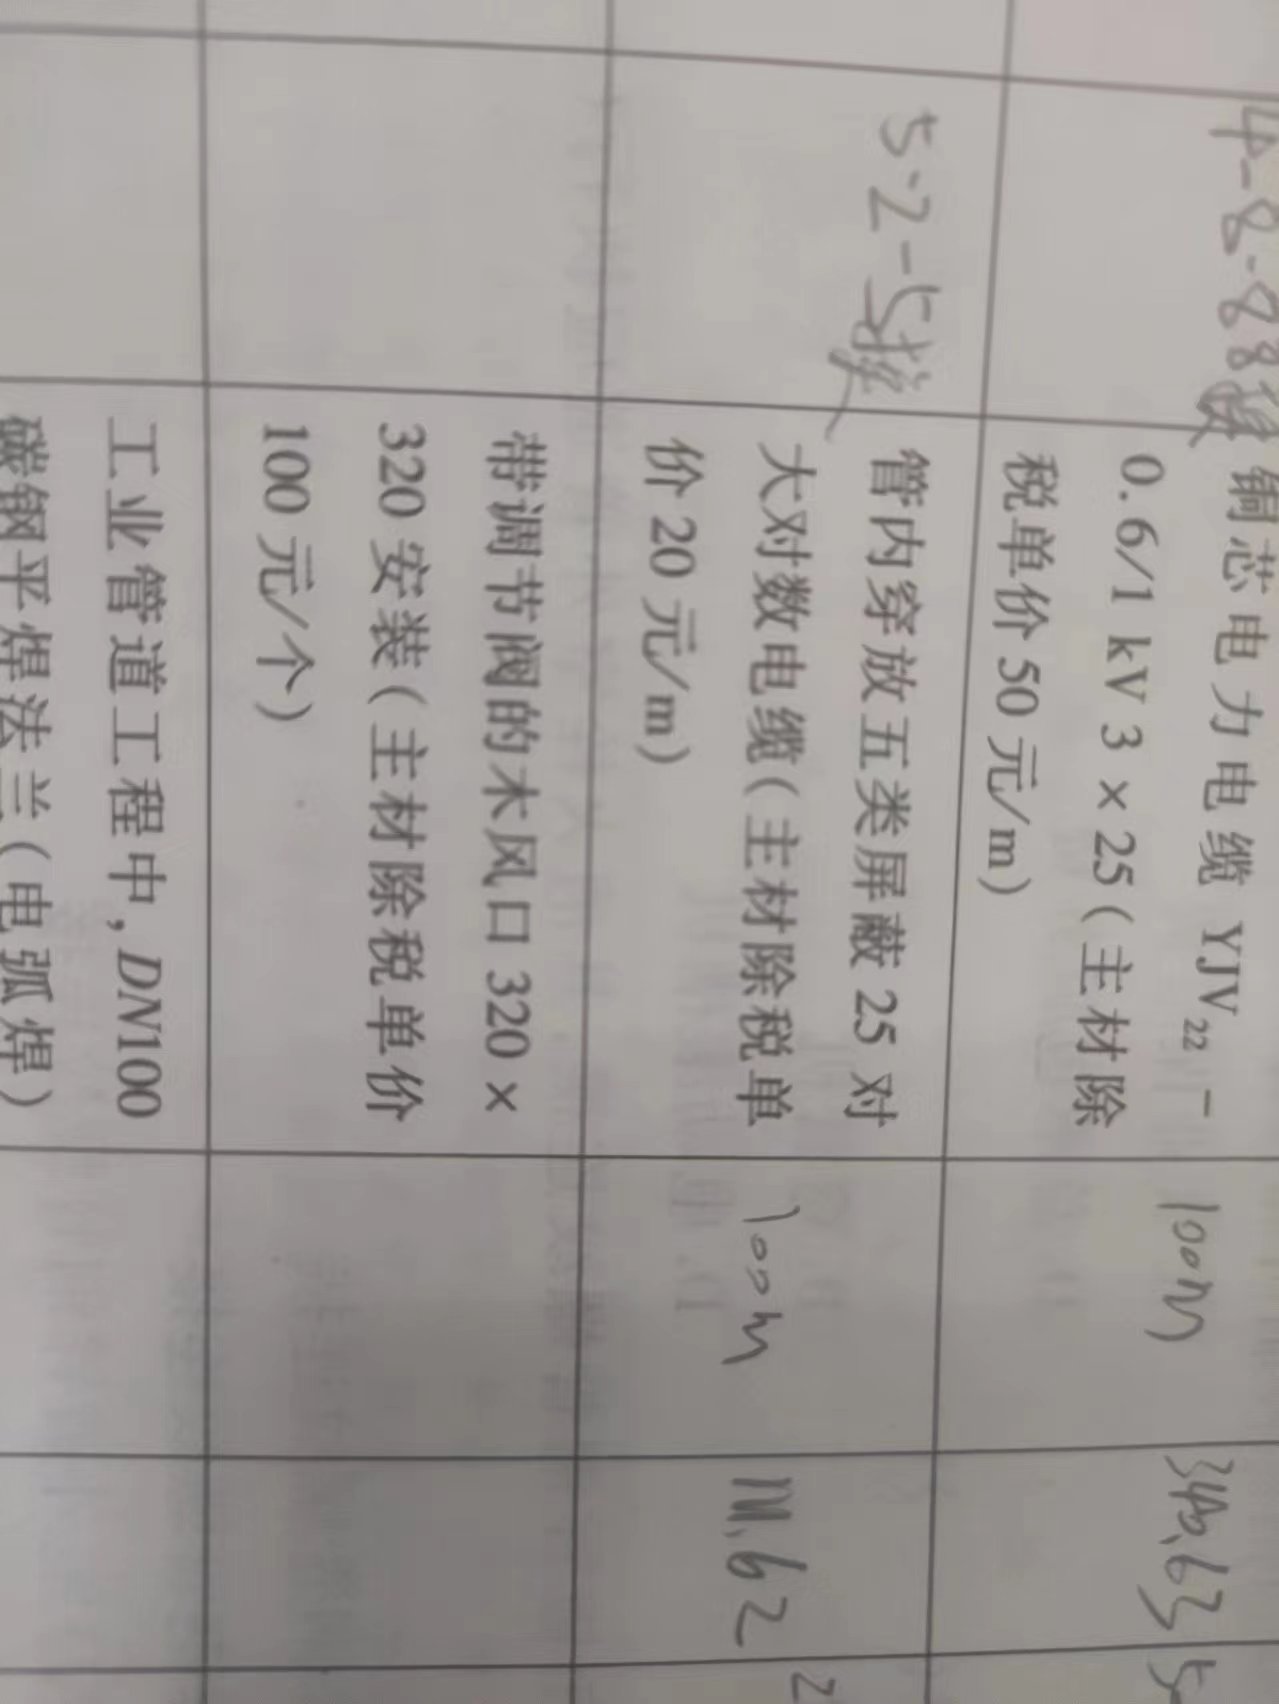 4-8-88换
铜芯电力电缆 YJV22 -
0.6/1 kV 3 × 25(主材除
税单价 50 元/m)
100m
340.63
5
5-2-5换
管内穿放五类屏蔽 25 对
大对数电缆(主材除税单
价 20 元/m)
100m
111.62
2
带调节阀的木风口 320 ×
320 安装(主材除税单价
100 元/个)
工业管道工程中,DN100
碳钢平焊法兰(电弧焊)